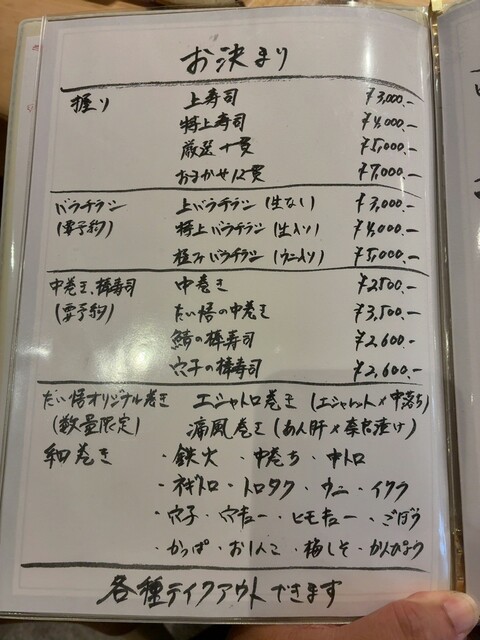 お決まり
握り 上寿司 ¥3,000.-
特上寿司 ¥4,000.-
厳選十貫 ¥5,000.-
おまかせ12貫 ¥7,000.-
バラチラシ 上バラチラシ (生なし) ¥3,000.-
(要予約) 特上バラチラシ (生入り) ¥4,000.-
極上バラチラシ (ウニ入り) ¥5,000.-
中巻き、棒寿司 中巻き ¥2500.-
(要予約) だい悟の中巻き ¥3,500.-
鯖の棒寿司 ¥2,600.-
穴子の棒寿司 ¥2,600.-
だい悟オリジナル巻き エシャトロ巻き (エシャレット×中落ち)
(数量限定) 痛風巻き (あん肝×奈良漬け)
細巻き ・鉄火 ・中落ち ・中トロ
・ネギトロ ・トロタク ・ウニ ・イクラ
・穴子 ・穴キュー ・ヒモキュー ・ごぼう
・かっぱ ・おしんこ ・梅しそ ・かんぴょう
各種テイクアウトできます